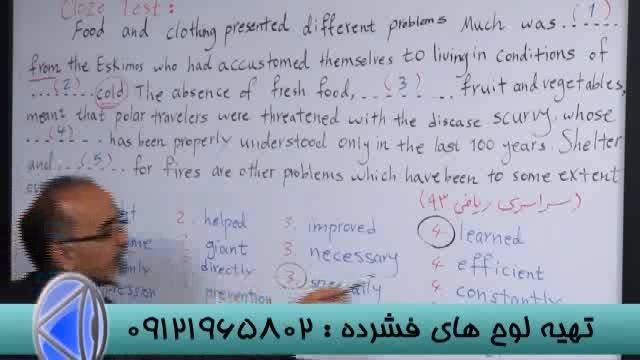 Cloze Test:
Food and clothing presented different problems Much was ..(1)..
from the Eskimos who had accustomed themselves to living in conditions of
....(2).... cold The absence of fresh food, ....(3).... fruit and vegetables,
meant that polar travelers were threatened with the disease scurvy, whose
...(4)... has been properly understood only in the last 100 years. Shelter
and ...(5)... for fires are other problems which have been to some extent
(سراسری ریاضی ۹۳)
2. helped 3. improved 4. learned
giant 3. necessary 4. efficient
directly 3. 4. constantly
prevention
تهیه لوح های فشرده : ۰۹۱۲۱۹۶۵۸۰۲